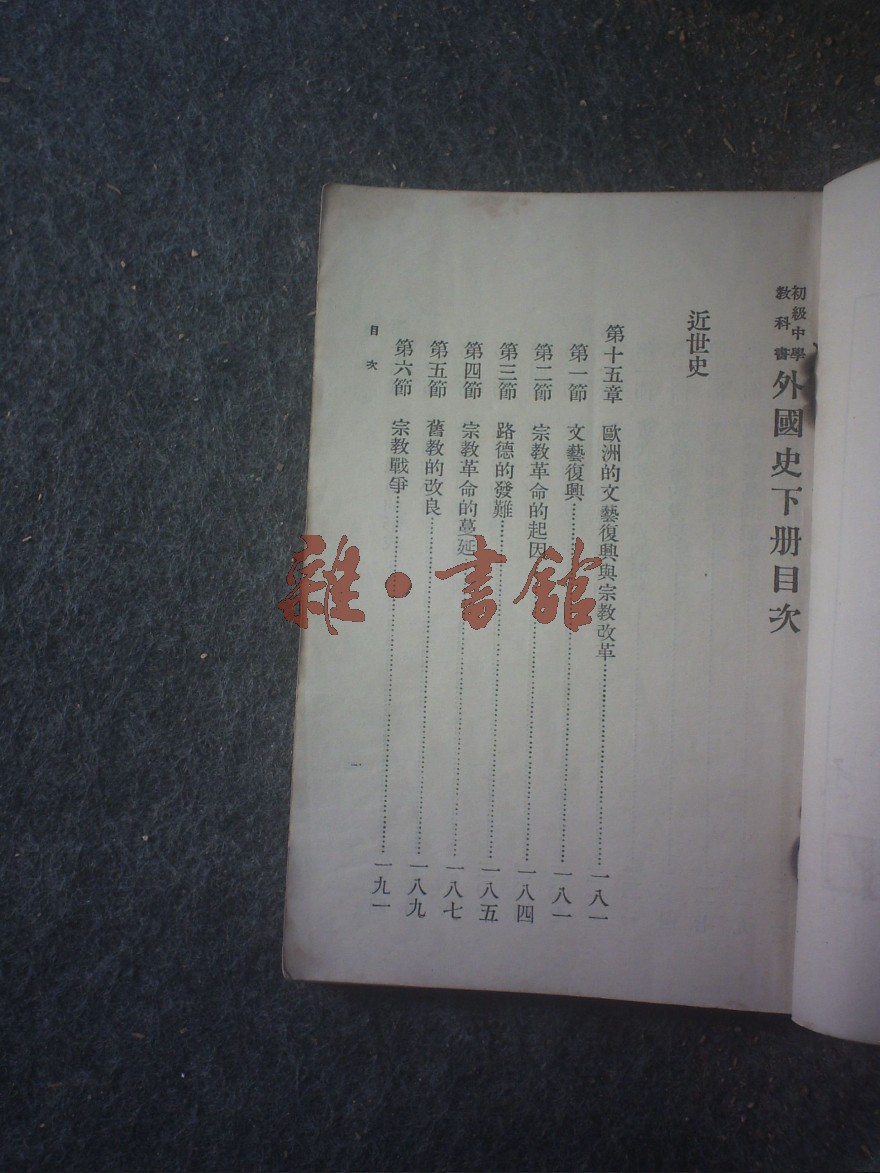 初級中學
教科書
外國史下册目次
近世史
第十五章 歐洲的文藝復興與宗教改革……一八一
第一節 文藝復興……一八一
第二節 宗教革命的起因……一八四
第三節 路德的發難……一八五
第四節 宗教革命的蔓延……一八七
第五節 舊教的改良……一八九
第六節 宗教戰爭……一九一
目次
一
雜·書館